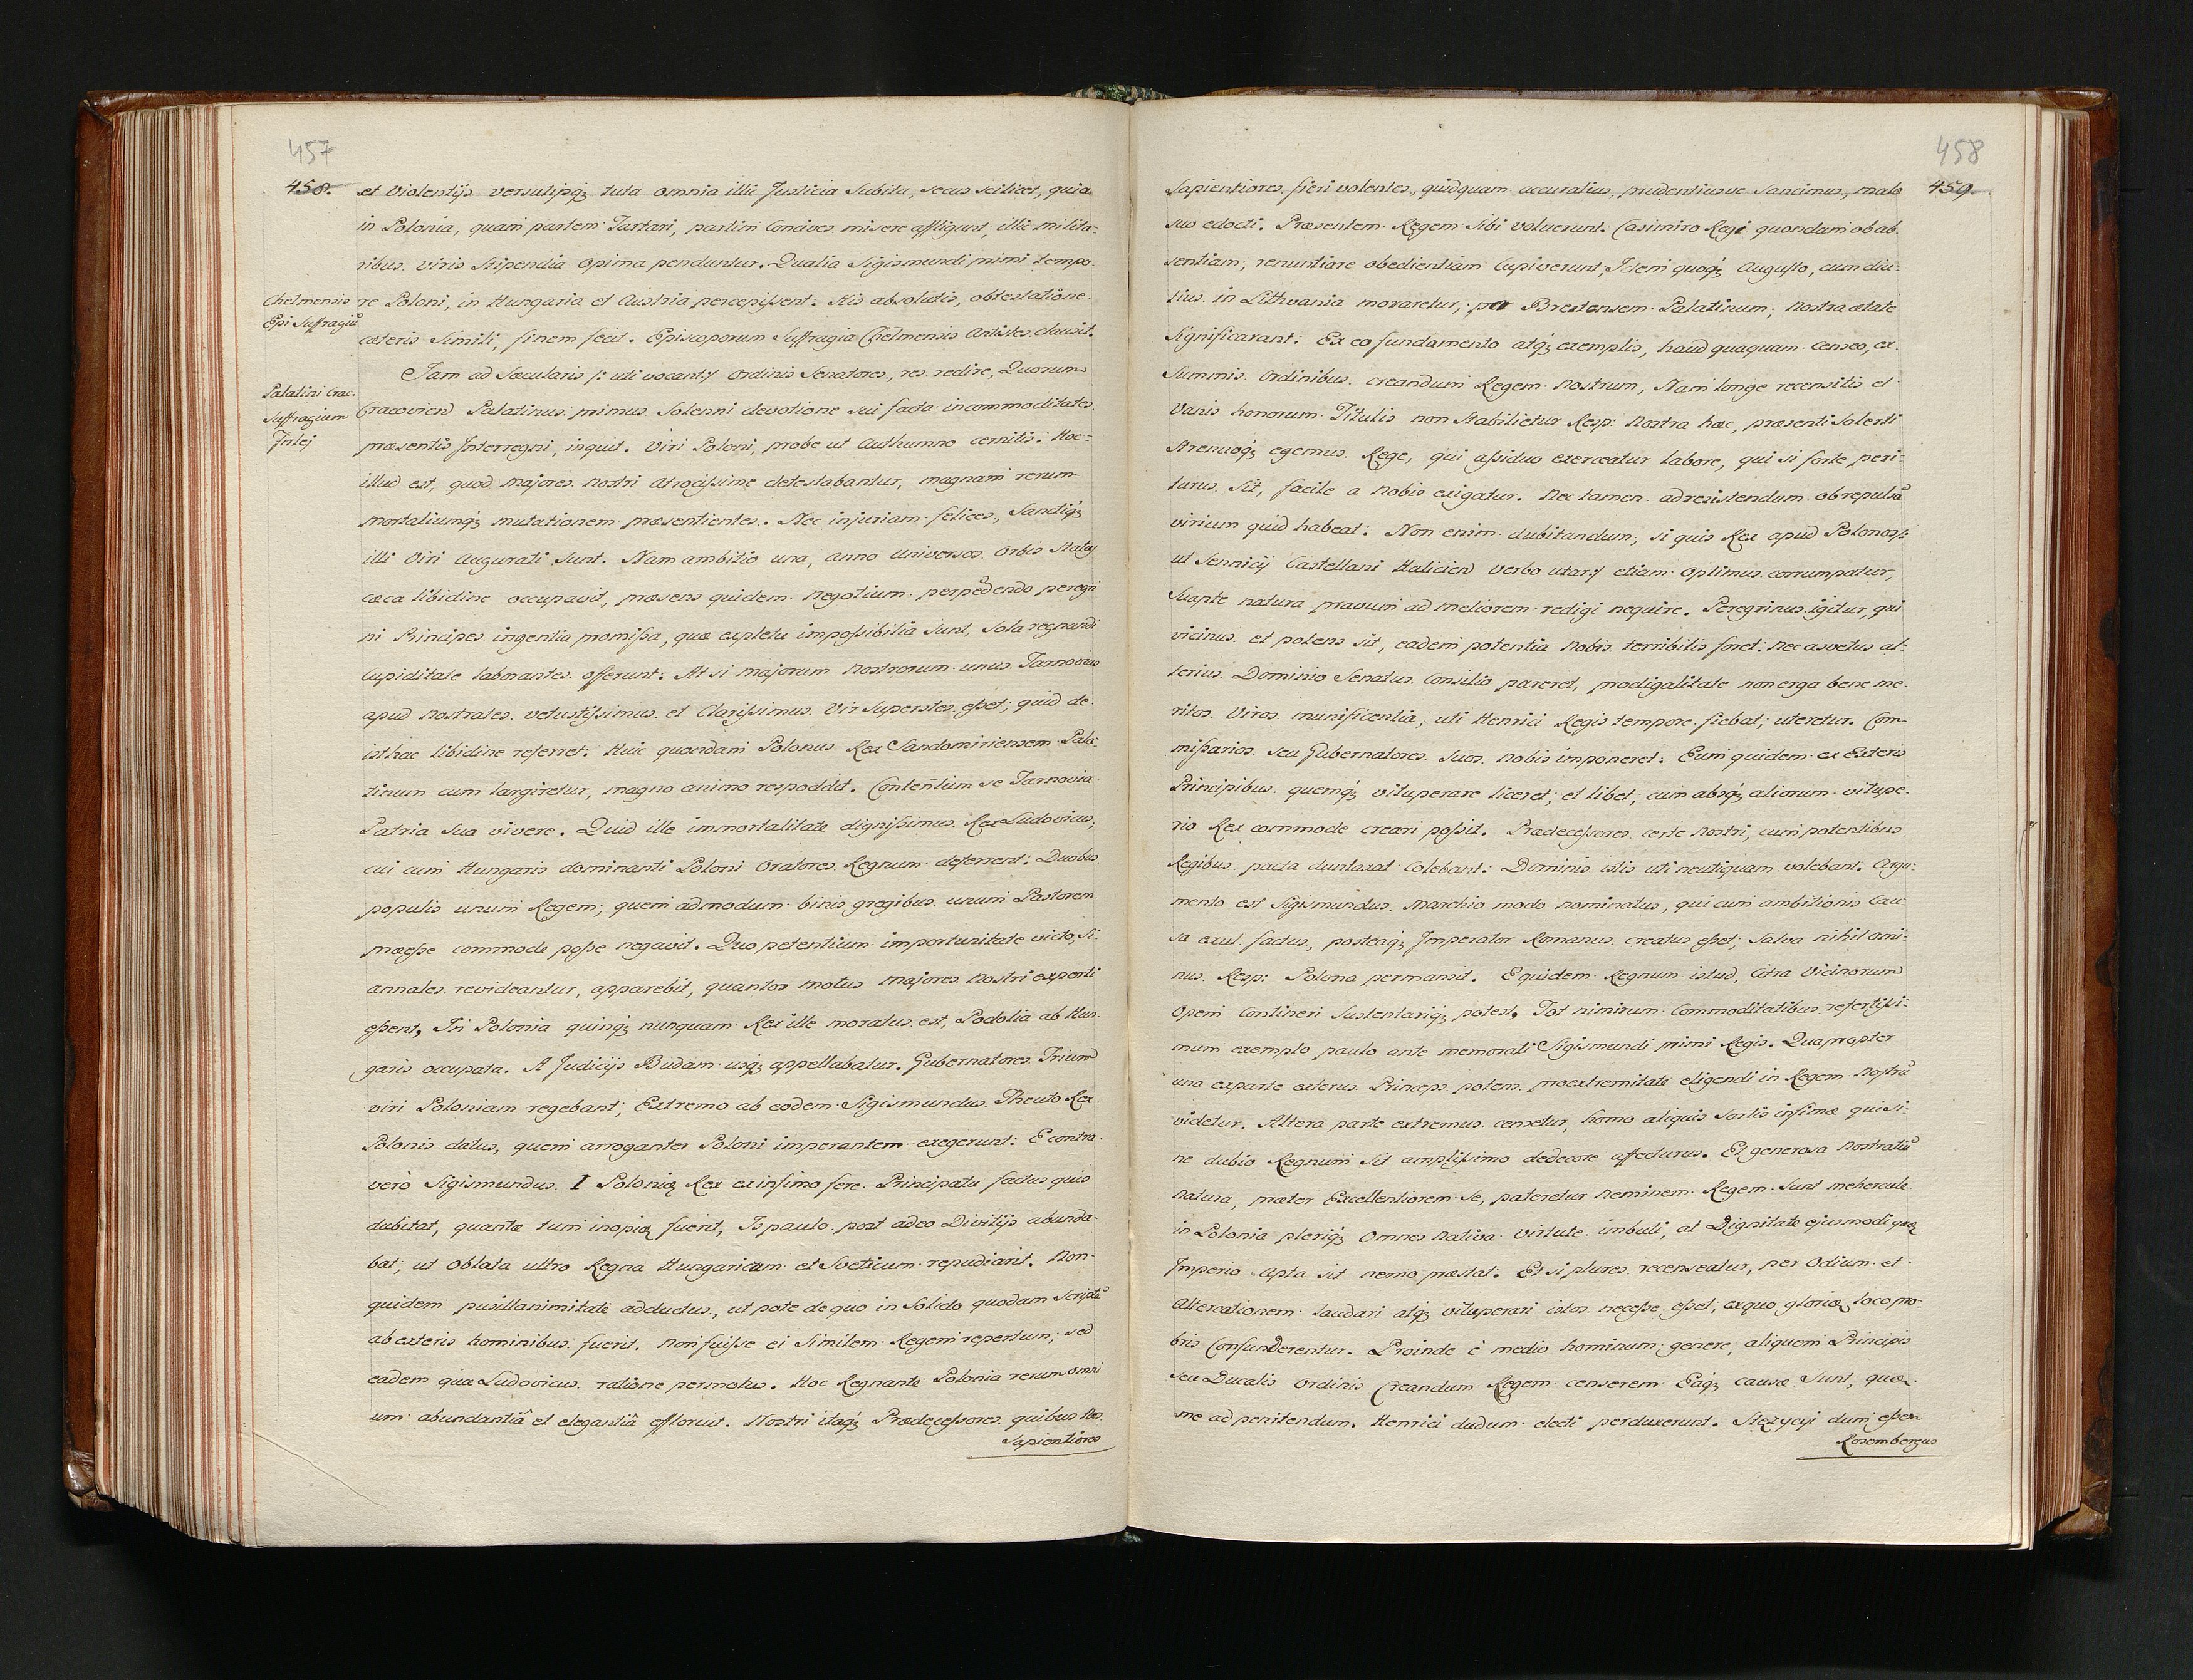 457
458.
et Violentijs versutijsq; tuta omnia illic Justicia Subita, secus scilicet, quia
in Polonia, quam partem Tartari, partim Concives misere affligunt, illic milita-
ribus viris Stipendia Opima penduntur. Qualia Sigismundi primi tempo-
Chelmensis
Epi Suffragiū
re Poloni, in Hungaria et Austria percepissent. His absolutis, obtestatione
cæteris Simili, finem fecit. Episcoporum Suffragia Chelmensis Antistes clausit.
Jam ad Sæcularis /: uti vocant:/ Ordinis Senatores, res redire, Quorum
Palatini Crac.
Suffragium
Inlej
Cracovien Palatinus primus Solenni devotione sui facta incommoditates
præsentis Interregni, inquit. Viri Poloni, probe ut Authumno cernitis: Hoc
illud est, quod Majores nostri atrocissime detestabantur, magnam rerum
mortaliumq; mutationem præsentientes. Nec injuriam felices, Sanctiq;
illi Viri Augurati Sunt. Nam ambitio una, anno Universos Orbis Status
cæca libidine occupavit, præsens quidem Negotium perpedendo peregri
ni Principes ingentia promissa, quæ expletu impossibilia Sunt, Sola regnandi
Cupiditate laborantes offerunt. At si majorum Nostrorum unus Tarnovius
apud Nostrates vetustissimus et Clarissimus Vir Superstes esset; quid de
isthac libidine referret. Huic quondam Polonus Rex Sandomiriensem Pala-
tinum cum largiretur, magno animo respoddit. Contentum se Tarnovia
Patria Sua vivere. Quid ille immortalitate dignissimus Rex Ludovicus,
cui cum Hungaris dominanti Poloni Oratores Regnum deferrent. Duobus
populis unum Regem, quem admodum binis gregibus unum Pastorem
præesse commode posse negavit. Quo petentium importunitate victo, si
annales revideantur, apparebit, quantos motus Majores Nostri experti
essent, In Polonia quinq; nunquam Rex ille moratus est, Podolia ab Hun-
garis occupata. A Judicijs Budam usq; appellabatur. Gubernatores Trium
viri Poloniam regebant, Extremo ab eodem Sigismundus Theuto Rex
Polonis datus, quem arroganter Poloni imperantem exegerunt. E contra
verò Sigismundus I Poloniæ Rex ex infimo fere Principatu factus quis
dubitat, quantæ tum inopiæ fuerit, Is paulo post adeo Divitijs abunda-
bat, ut Oblata ultro Regna Hungaricum et Sveticum repudiarit. Non
quidem pusillanimitate adductus, ut pote de quo in Solido quodam Scriptū
ab exteris hominibus fuerit. Non fuisse ei Similem Regem repertum, sed
eadem qua Ludovicus ratione permotus. Hoc Regnante Polonia rerum omni
um abundantiâ et elegantiâ effloruit. Nostri itaq; Prædecessores quibus Nos
Sapientiores
458
459.
Sapientiores fieri volentes, quidquam accuratius, prudentiusve Sancimus, malo
suo edocti. Præsentem Regem Sibi voluerunt. Casimiro Regi quondam ob ab
sentiam, renuntiare obedientiam Cupiverunt, Idem quoq; Augusto, cum diu-
tius in Lithvania moraretur, per Brestensem Palatinum, Nostra ætate
Significarant. Ex eo fundamento atq; exemplis, haud quaquam Censeo, ex
Summis Ordinibus creandum Regem Nostrum, Nam longe recensitis et
Vanis honorum Titulis non Stabilietur Resp: Nostra hæc, præsenti Solerti
Strenuoq; egemus Rege, qui assiduo exerceatur labore, qui si forte peri-
turus Sit, facile a Nobis exigatur. Nec tamen ad resistendum ob repulsā
virium quid habeat. Non enim dubitandum, si quis Rex apud Polonos /:
ut Sennicij Castellani Halicien Verbo utar:/ etiam Optimus corrumpatur,
Suapte natura pravum ad meliorem redigi nequire. Peregrinus igitur, qui
vicinus et potens sit, eadem potentia Nobis terribilis foret: Nec asvetus al-
terius Dominio Senatus Consilio pareret, prodigalitate non erga bene me-
ritos Viros munificentia, uti Henrici Regis tempore fiebat, uteretur. Com-
missarios seu Gubernatores Suos Nobis imponeret. Eum quidem ex Exteris
Principibus quemq; vituperare liceret, et libet, cum absq; aliorum vitupe-
rio Rex commode creari possit. Prædecessores certe Nostri, cum potentibus
Regibus pacta duntaxat Colebant: Dominis istis uti neutiquam volebant. Argu-
mento est Sigismundus Marchio modo nominatus, qui cum ambitionis Cau-
sa exul factus, posteaq; Imperator Romanus creatus esset, Salva nihil omi-
nus Resp: Polona permansit. Equidem Regnum istud, Citra Vicinorum
Opem Contineri Sustentariq; potest. Tot nimirum Commoditatibus refertissi-
mum exemplo paulo ante memorati Sigismundi primi Regis. Quapropter
una ex parte exterus Princeps potens pro extremitate eligendi in Regem Nostrū
videtur. Altera parte extremus censetur, homo aliquis Sortis infimæ qui si-
ne dubio Regnum Sit amplissimo dedecore affecturus. Et generosa Nostratiū
Natura, præter Excellentiorem Se, pateretur Neminem Regem. Sunt mehercule
in Polonia pleriq; Omnes Nativa Virtute imbuti, at Dignitate ejusmodi quæ
Imperio Apta sit nemo præstat. Et si plures recenseatur, per Odium et
Altercationem laudari atq; vituperari istos necesse esset, ex quo gloriæ loco pro-
bris Confunderentur. Proinde è medio hominum genere, aliquem Principis
seu Ducalis Ordinis Creandum Regem censerem. Eaq; causæ Sunt, quæ
me ad penitendum. Henrici dudum electi perduxerunt. Stęzycyi dum essem
Rosembergus